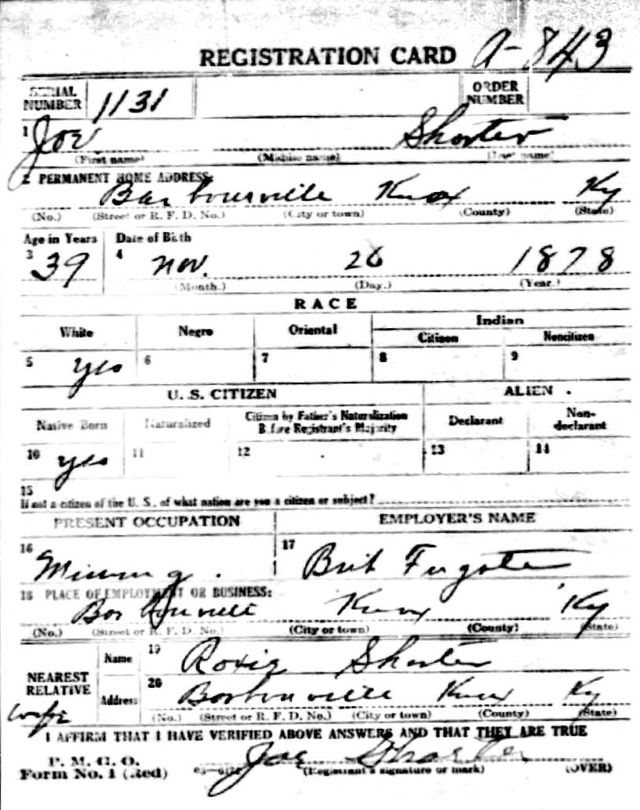 REGISTRATION CARD A-843
SERIAL NUMBER 1131 ORDER NUMBER
1 Joe Shorter
(First name) (Middle name) (Last name)
2 PERMANENT HOME ADDRESS:
Barbourville Knox Ky
(No.) (Street or R. F. D. No.) (City or town) (County) (State)
Age in Years Date of Birth
3 39 4 Nov. 26 1878
(Month.) (Day.) (Year.)
RACE
White Negro Oriental Indian
Citizen Noncitizen
5 yes 6 7 8 9
U. S. CITIZEN ALIEN
Native Born Naturalized Citizen by Father's Naturalization Before Registrant's Majority Declarant Non-declarant
10 yes 11 12 13 14
15
If not a citizen of the U. S., of what nation are you a citizen or subject?
PRESENT OCCUPATION EMPLOYER'S NAME
16 Mining. 17 Brit
18 PLACE OF EMPLOYMENT OR BUSINESS:
Knox Ky
(No.) (Street or R. F. D. No.) (City or town) (County) (State)
NEAREST RELATIVE Name 19 Roxie Shorter
wife Address 20 Barbourville Knox Ky
(No.) (Street or R. F. D. No.) (City or town) (County) (State)
I AFFIRM THAT I HAVE VERIFIED ABOVE ANSWERS AND THAT THEY ARE TRUE
P. M. G. O.
Form No. 1 (Red) Joe Shorter
(Registrant's signature or mark) (OVER)